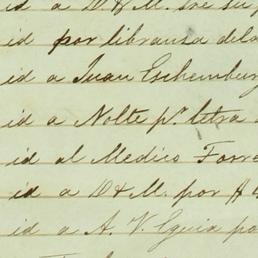 id a D & M. 
id por libransa del
id a Juan Eschemburg
id a Nolte pr. letra
id al Medico Torre
id a D & M. por $
id a A. V. Eguia po